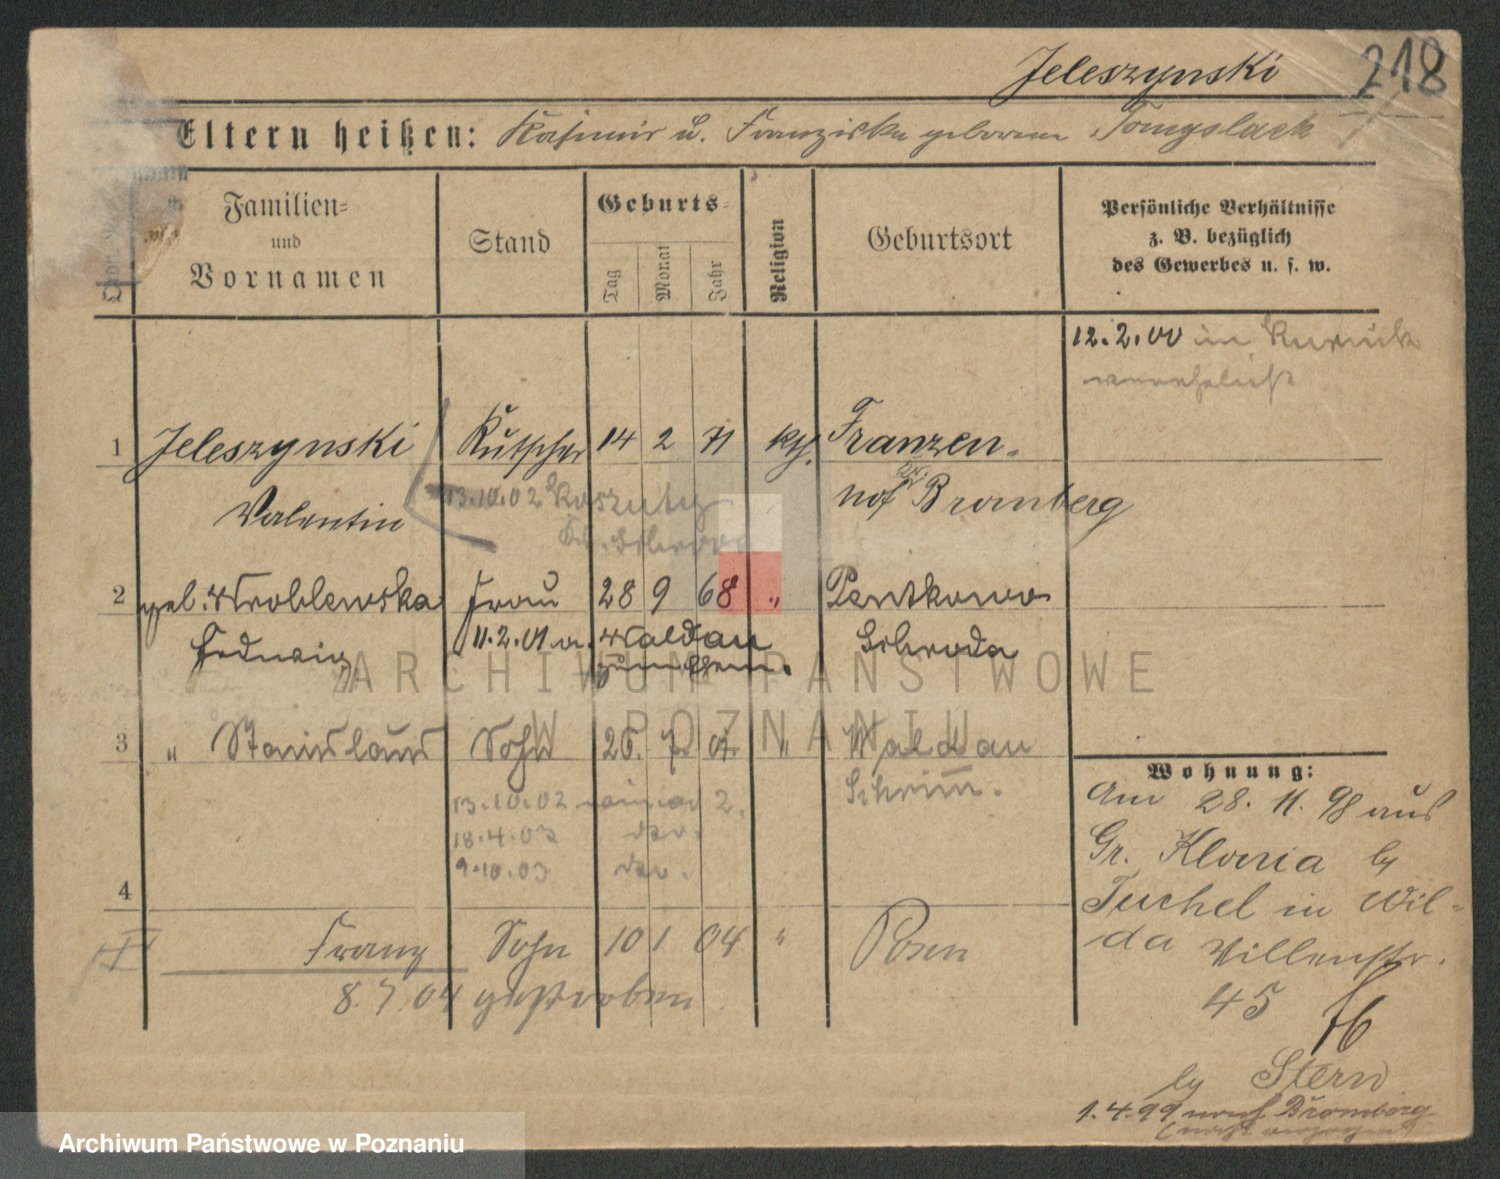 Jeleszynski 218
Eltern heißen: Kasimir u. Franziska geborene Tomyslack
Familien-
und
Vornamen
Stand
Geburts-
Tag
Monat
Jahr
Religion
Geburtsort
Persönliche Verhältnisse
z. B. bezüglich
des Gewerbes u. s. w.
12.2.00 in Kurnik
verehelicht
1 Jeleszynski Kutscher 14 2 71 kth. Franzen-
Valentin
13.10.02 Koszuty
Kr. Schroda
hof Kr. Bromberg
2 geb. Wroblewska Frau 28 9 68 " Pentkowo
Hedwig 11.2.01 a. Waldau Schroda
zum Chem.
3 " Stanislaus Sohn 26. 7. 01. " Waldau
Schrimm.
13.10.02 2.
18.4.03
9.10.03
4
Franz Sohn 10 1 04 " Posen
8.7.04 gestorben
Wohnung:
Am 28. 11. 98 aus
Gr. Klonia by
Tuchel in Wil-
da Villenstr.
45
by Stern
1.4.99 nach Bromberg
ARCHIWUM PAŃSTWOWE
W POZNANIU
Archiwum Państwowe w Poznaniu